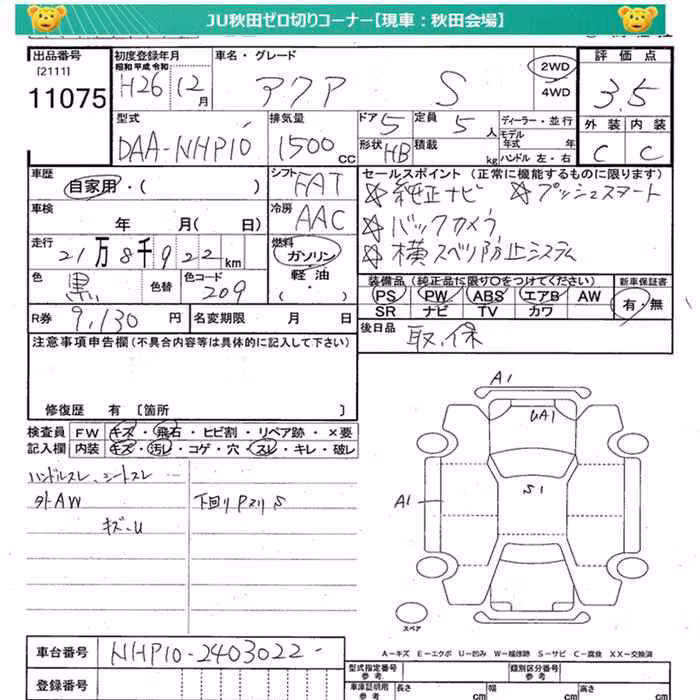 JU秋田ゼロ切りコーナー【現車:秋田会場】
出品番号 初度登録年月 車名・グレード 評価点
[2111] 昭和 平成 令和
11075 H26 12月 アクア S 2WD 4WD 3.5
外装 内装
C C
型式 排気量 ドア 5 定員 5人 ディーラー・並行
DAA-NHP10 1500CC 形状 HB 積載 kg モデル年式 年式
ハンドル 左・右
車歴 シフト FAT セールスポイント (正常に機能するものに限ります)
自家用・( ) ☆純正ナビ ☆プッシュスタート
車検 年 月( 日) 冷房 AAC ☆バックカメラ
走行 21万8千922km 燃料 ガソリン・軽油・( ) ☆横スベリ防止システム
色 黒 色替 色コード 209 装備品 (純正品に限り〇をつけてください) 新車保証書
PS PW ABS エアB AW 有・無
SR ナビ TV カワ
R券 9,130円 名変期限 月 日 後日品 取.保
注意事項申告欄(不具合内容等は具体的に記入して下さい)
修復歴 有 [箇所 ]
検査員 FW キズ・飛石・ヒビ割・リペア跡・×要
記入欄 内装 キズ・汚レ・コゲ・穴・スレ・キレ・破レ
ハンドルスレ、シートスレ
外AW 下回りPスリS
キズ-U
A1
UA1
A1
S1
スペア
A-キズ E-エクボ U-凹み W-補修跡 S-サビ C-腐食 XX-交換済
車台番号 NHP10-2403022-
登録番号
型式指定番号 参考 類別区分番号 参考
車庫証明用 参考 長さ cm 幅 cm 高さ cm